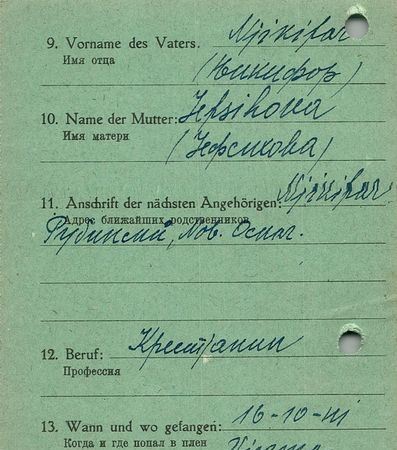 9. Vorname des Vaters: Njikifar
Имя отца (Никифор)
10. Name der Mutter: Jefsikova
Имя матери (Ефсикова)
11. Anschrift der nächsten Angehörigen: Njikifar
Адрес ближайших родственников
Нов.
12. Beruf: Крестьянин
Профессия
13. Wann und wo gefangen: 16-10-41
Когда и где попал в плен